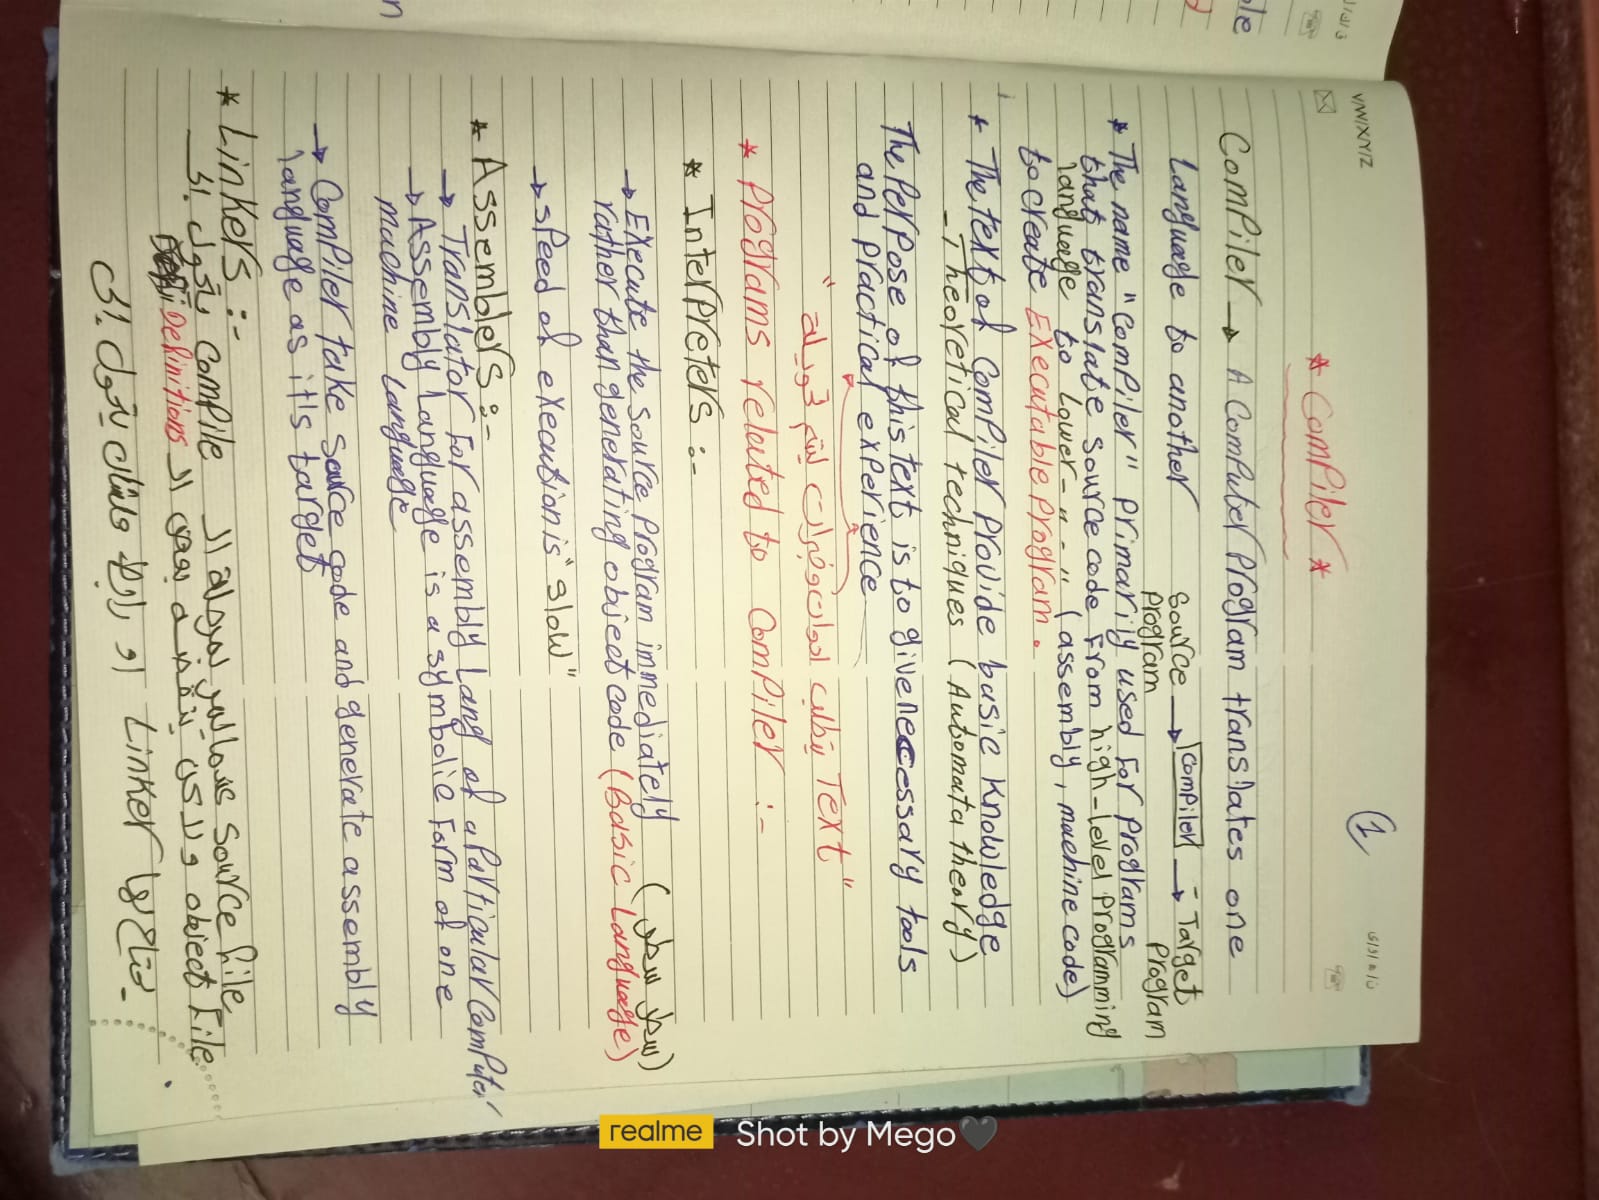 V/W/X/Y/Z
1
* Compiler *
Compiler → A Computer Program translates one
Language to another Source Program → Compiler → Target Program
* The name "Compiler" primarily used For Programs
that translate source code From high-level Programming
language to Lower - " - " (assembly, machine code)
to create Executable Program.
* The text of Compiler Provide basic Knowledge
- Theoretical techniques (Automata theory)
The Perpose of this text is to give necessary tools
and Practical experience
Text"
* Programs related to Compiler :-
* Interpreters :-
→ Execute the source Program immediately (سطر سطر)
rather than generating object code (Basic Language)
→ speed of execution is "slow"
* Assemblers :-
→ Translator For assembly Lang of a Particular Computer
→ Assembly Language is a symbolic Form of one
machine Language
→ Compiler take source code and generate assembly
language as it's target
* Linkers :-
Compile source File
object File
Definitions
Linker
realme Shot by Mego🖤